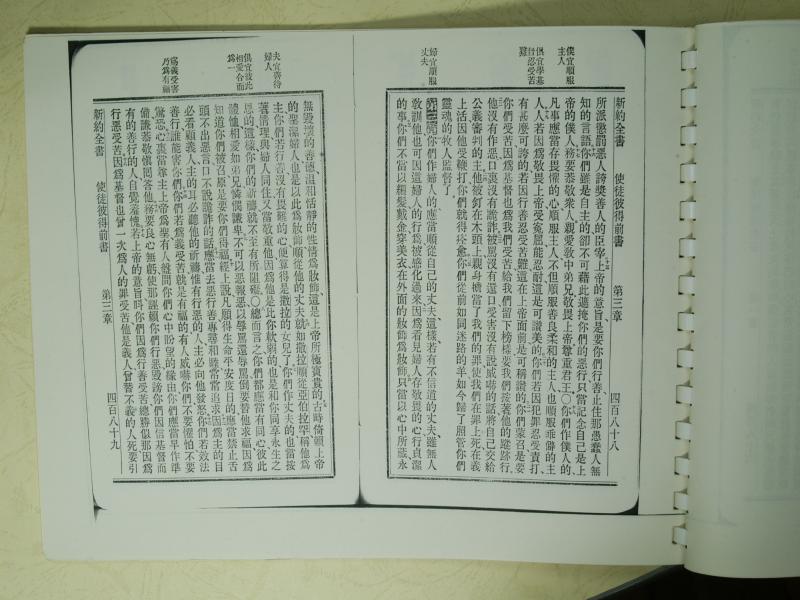 僕宜順服
主人
俱宜學基
督忍受苦
難
婦宜順服
丈夫
新約全書　使徒彼得前書　第三章　四百八十八
所派懲罰惡人誇獎善人的臣宰上帝的意旨是要你們行善止住那愚蠢人無
知的言語你們雖是自主的卻不可藉此遮掩你們的惡行只當記念自己是上
帝的僕人務要恭敬衆人親愛敎中弟兄敬畏上帝尊重君王〇你們作僕人的
凡事應當存畏懼的心順服主人不但順服善良柔和的主人也順服乖僻的主
人人若因爲敬畏上帝受寃屈能忍耐這是可讚美的你們若因犯罪忍受責打
有甚麼可誇的若因行善忍受苦難這在上帝面前是可稱讚的你們蒙召是要
你們受苦因爲基督也爲我們受苦給我們留下榜樣要我們按著他的蹤跡行
他沒有作惡口裏沒有詭詐被罵沒有還口受害沒有說威嚇的話將自己交給
公義審判的主他被釘在木頭上親身擔當了我們的罪使我們在罪上死在義
上活因他受鞭打你們就得痊愈你們從前如同迷路的羊如今歸了照管你們
靈魂的牧人監督了
你們作婦人的應當順從自己的丈夫這樣若有不信道的丈夫雖無人
敎訓他也可因這婦人的行爲被感化過來因爲看見婦人存敬畏的心行貞潔
的事你們不當以編髮戴金穿美衣在外面的妝飾爲妝飾只當以心中所藏永
夫宜善待
婦人
俱宜彼此
相愛合而
爲一
爲義受害
乃爲有福
無毀壞的善德溫和恬靜的性情爲妝飾這是上帝所極寶貴的古時倚賴上帝
的聖潔婦人也是以此爲妝飾順從他的丈夫就如撒拉順從亞伯拉罕稱他爲
主你們若行善沒有畏懼的心便算得是撒拉的女兒了你們作丈夫的也當按
著情理與婦人同住又當敬重他因爲他是比你軟弱的也是和你同享永生之
恩的這樣你們的祈禱就不至有所阻礙〇總而言之你們都應當有同心彼此
體恤相愛如弟兄憐憫謙卑不可以惡報惡以辱罵還辱罵倒要替他求福因爲
知道你們被召原是要你們得福經上說凡願得生命平安度日的應當禁止舌
頭不出惡言口不說詭詐的話應當去惡行善專尋和睦常常追求因爲主的目
必看顧義人主的耳必聽他的祈禱惟有行惡的人主必向他發怒你們若效法
善行誰能害你們你們若爲義受苦就是有福的有人威嚇你們不要懼怕不要
驚恐心裏當尊主上帝爲聖有人盤問你們心中盼望的緣由你們應當早作準
備謙恭敬愼囘答他務要良心無虧使那誣賴你們行惡毀謗你們因信基督而
有的善行的人自覺羞愧若上帝的意旨呌你們因爲行善受苦總勝似那因爲
行惡受苦因爲基督也曾一次爲人的罪受苦他是義人曾替不義的人死要引
新約全書　使徒彼得前書　第三章　四百八十九